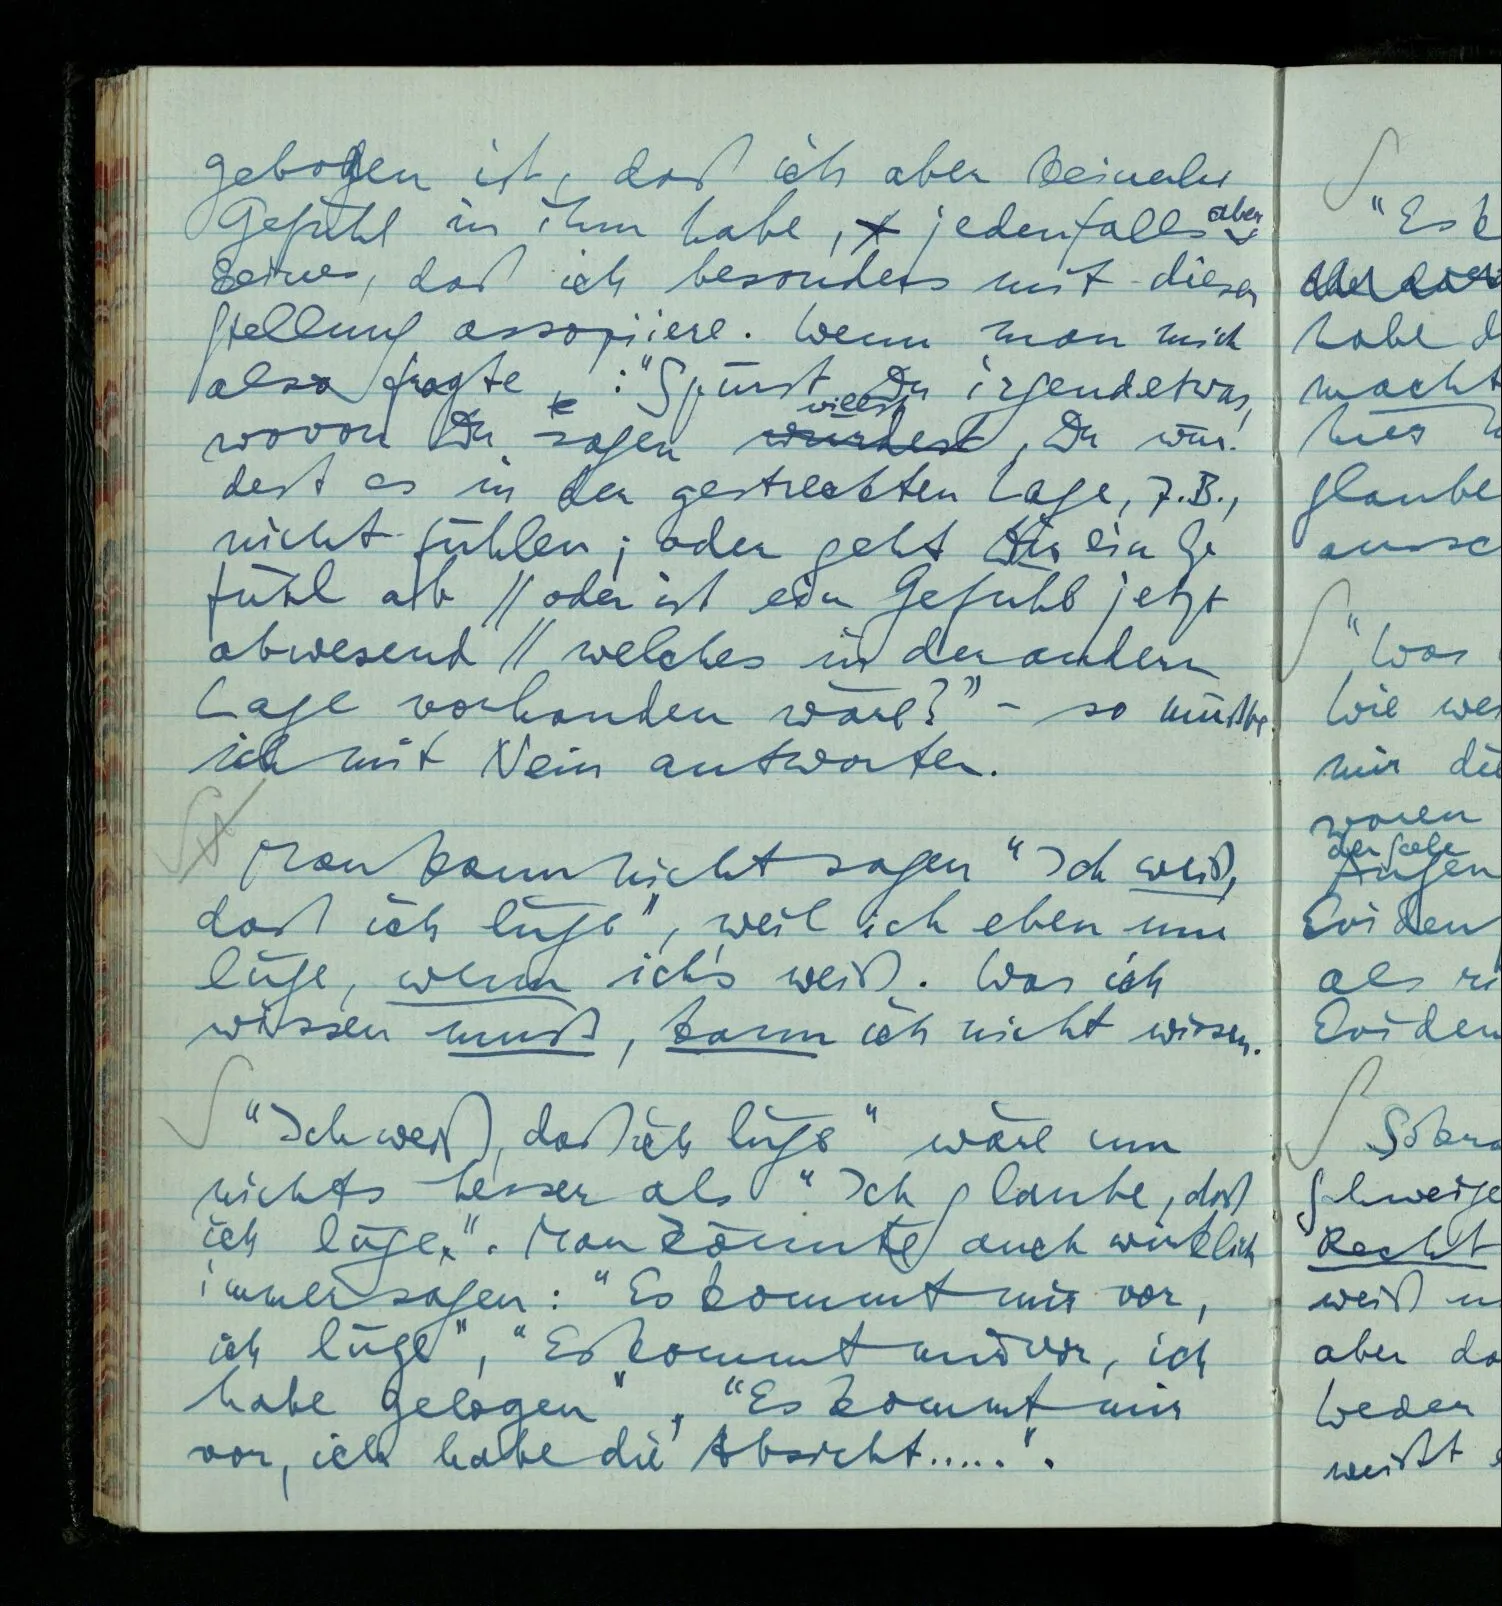 gebogen ist, daß ich aber keinerlei
Gefühl in ihm habe, jedenfalls aber
keines, daß ich besonders mit dieser
Stellung assoziiere. Wenn man mich
also fragte: "Spürst Du irgendetwas,
wovon Du sagen würdest willst, Du wür-
dest es in der gestreckten Lage, z.B.,
nicht fühlen; oder geht Dir ein Ge
fühl ab // oder ist ein Gefühl jetzt
abwesend // welches in der andern
Lage vorhanden wäre?" – so müßte
ich mit Nein antworten.
Man kann nicht sagen "Ich weiß,
daß ich lüge", weil ich eben nur
lüge, wenn ich's weiß. Was ich
wissen muß, kann ich nicht wissen.
"Ich weiß, daß ich lüge" wäre um
nichts besser als "Ich glaube, daß
ich lüge". Man könnte auch wirklich
immer sagen: "Es kommt mir vor,
ich lüge", "Es kommt mir vor, ich
habe gelogen", "Es kommt mir
vor, ich habe die Absicht.....".
"Es k
habe d
macht
glaube
"Was
Wie we
mir die
waren
derselbe
Augen
Eviden
als ri
Eviden
Sokra
Schweige
Recht
weiß
aber da
Weder
weißt